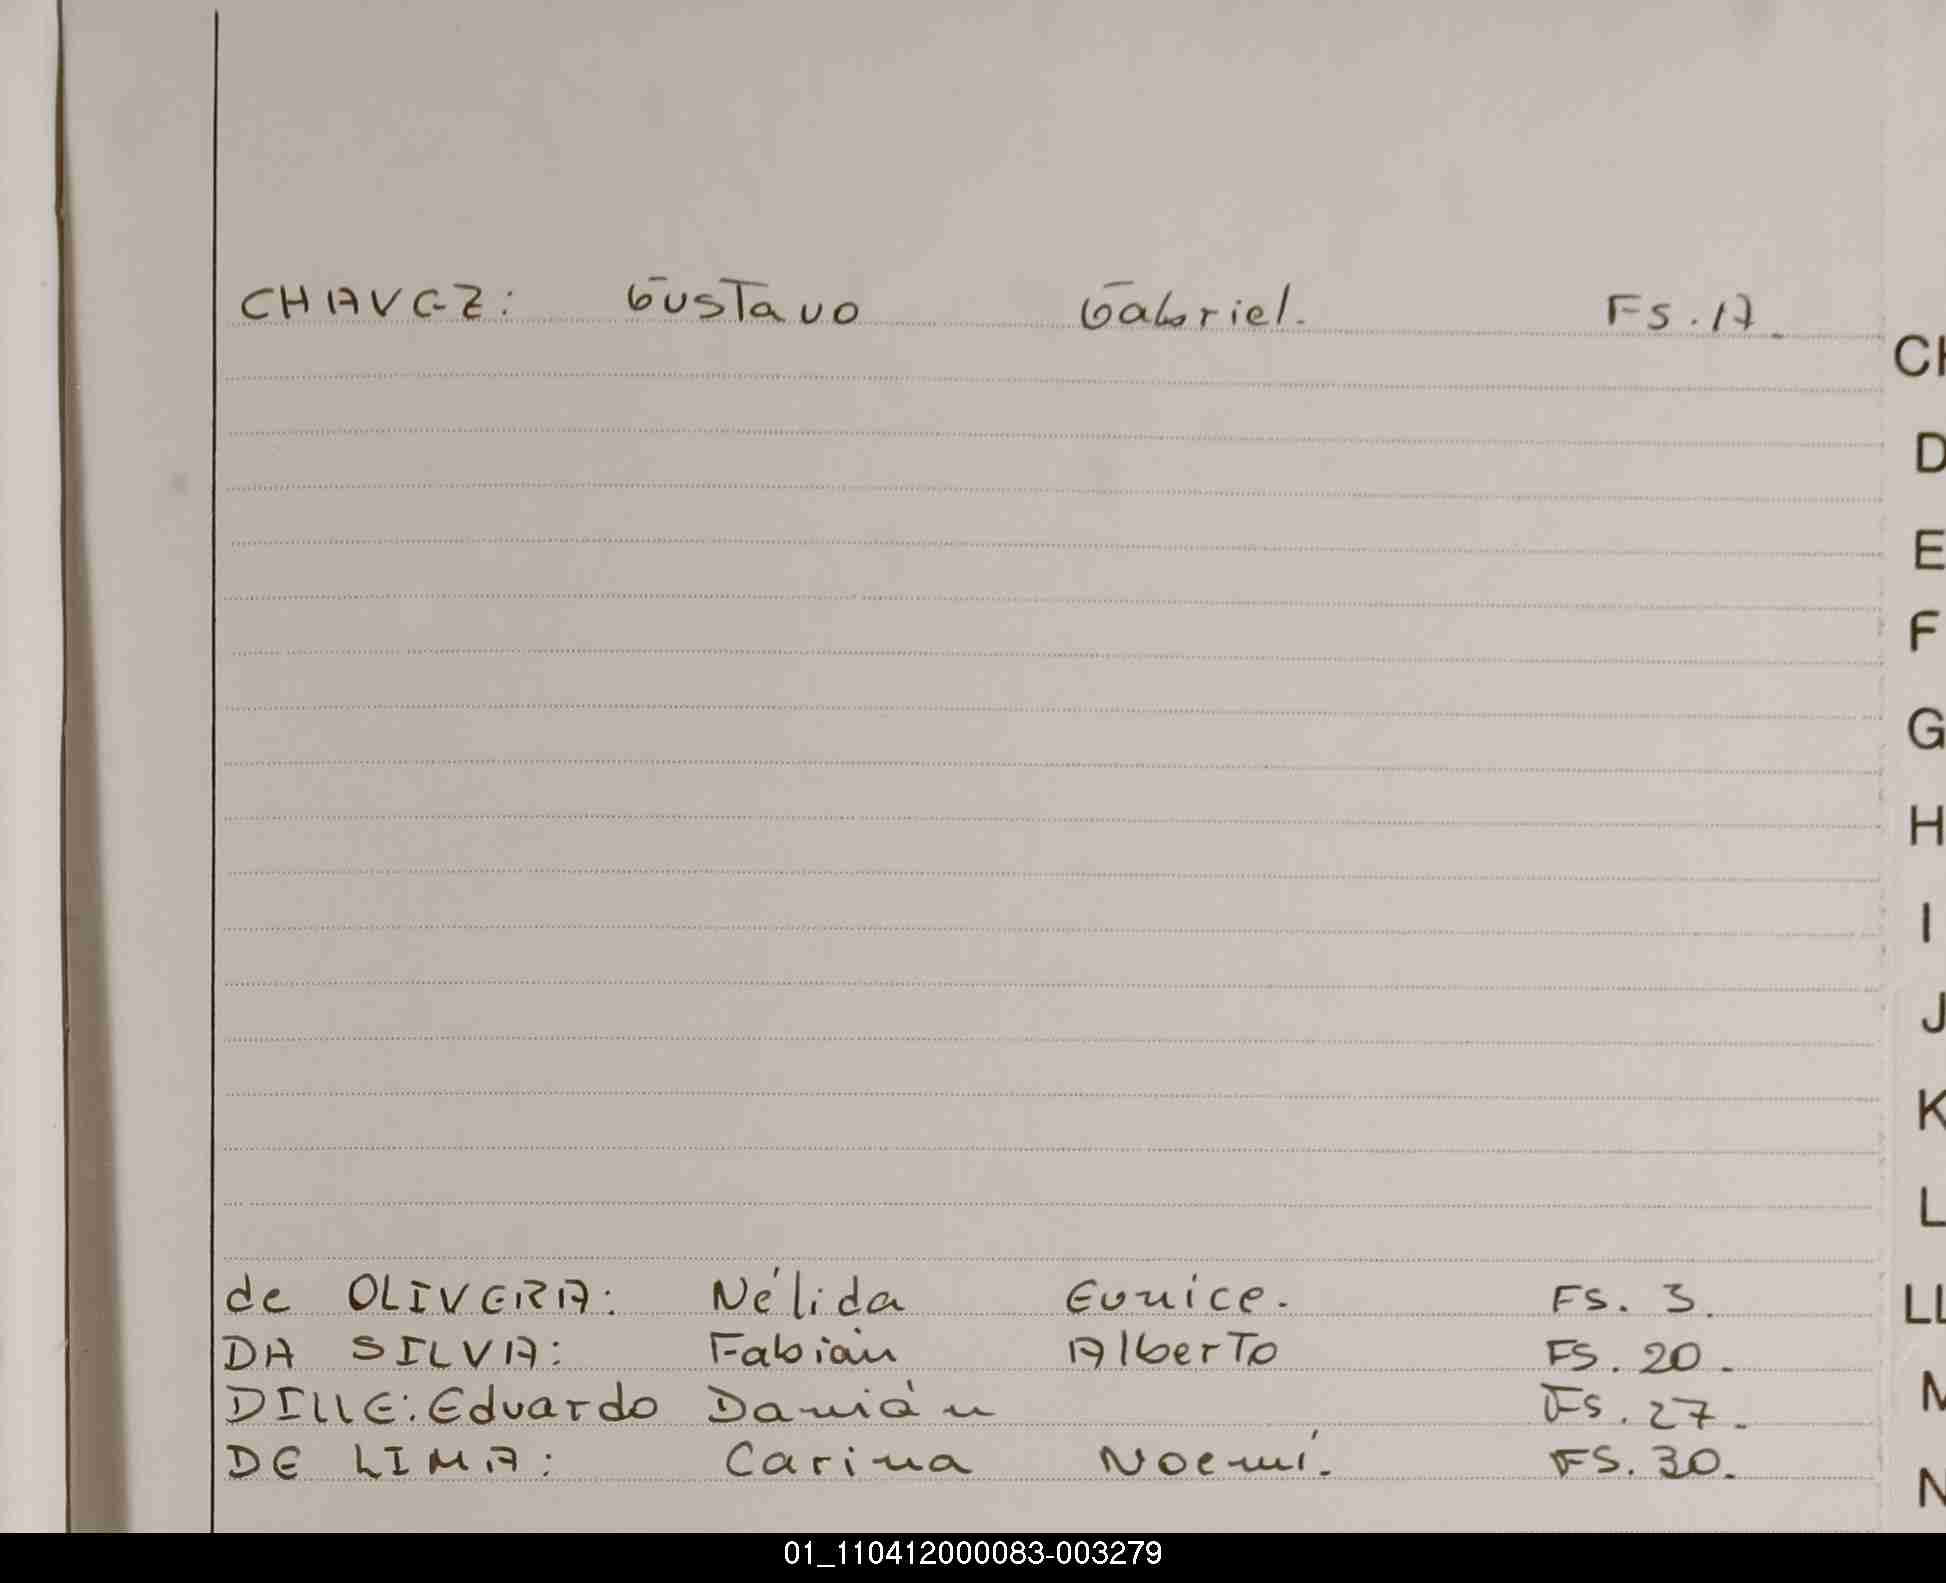 CHAVEZ: Gustavo Gabriel. Fs. 17.
CH
D
E
F
G
H
I
J
K
L
de OLIVERA: Nélida Eunice. FS. 3.
LL
DA SILVA: Fabián Alberto FS. 20.
M
DILLE: Eduardo Damián Fs. 27.
DE LIMA: Carina Noemí. FS. 30.
N
01_110412000083-003279